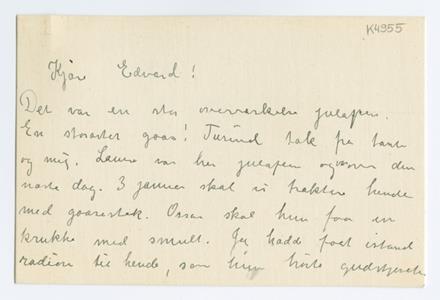 K4955
Kjære Edvard!
Det var en stor overraskelse julaften.
En storartet gaas! Tusind tak fra tante
og mig. Laura var her julaften og den
næste dag. 3 januar skal vi traktere hende
med gaasestek. Ossaa skal hun faa en
krukke med smult. Jeg hadde faat istand
radioen til hende, saa hun hørte gudstjeneste